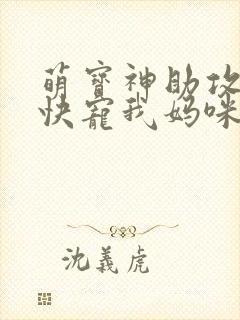 萌寶神助攻
快寵我媽咪
沈義虎